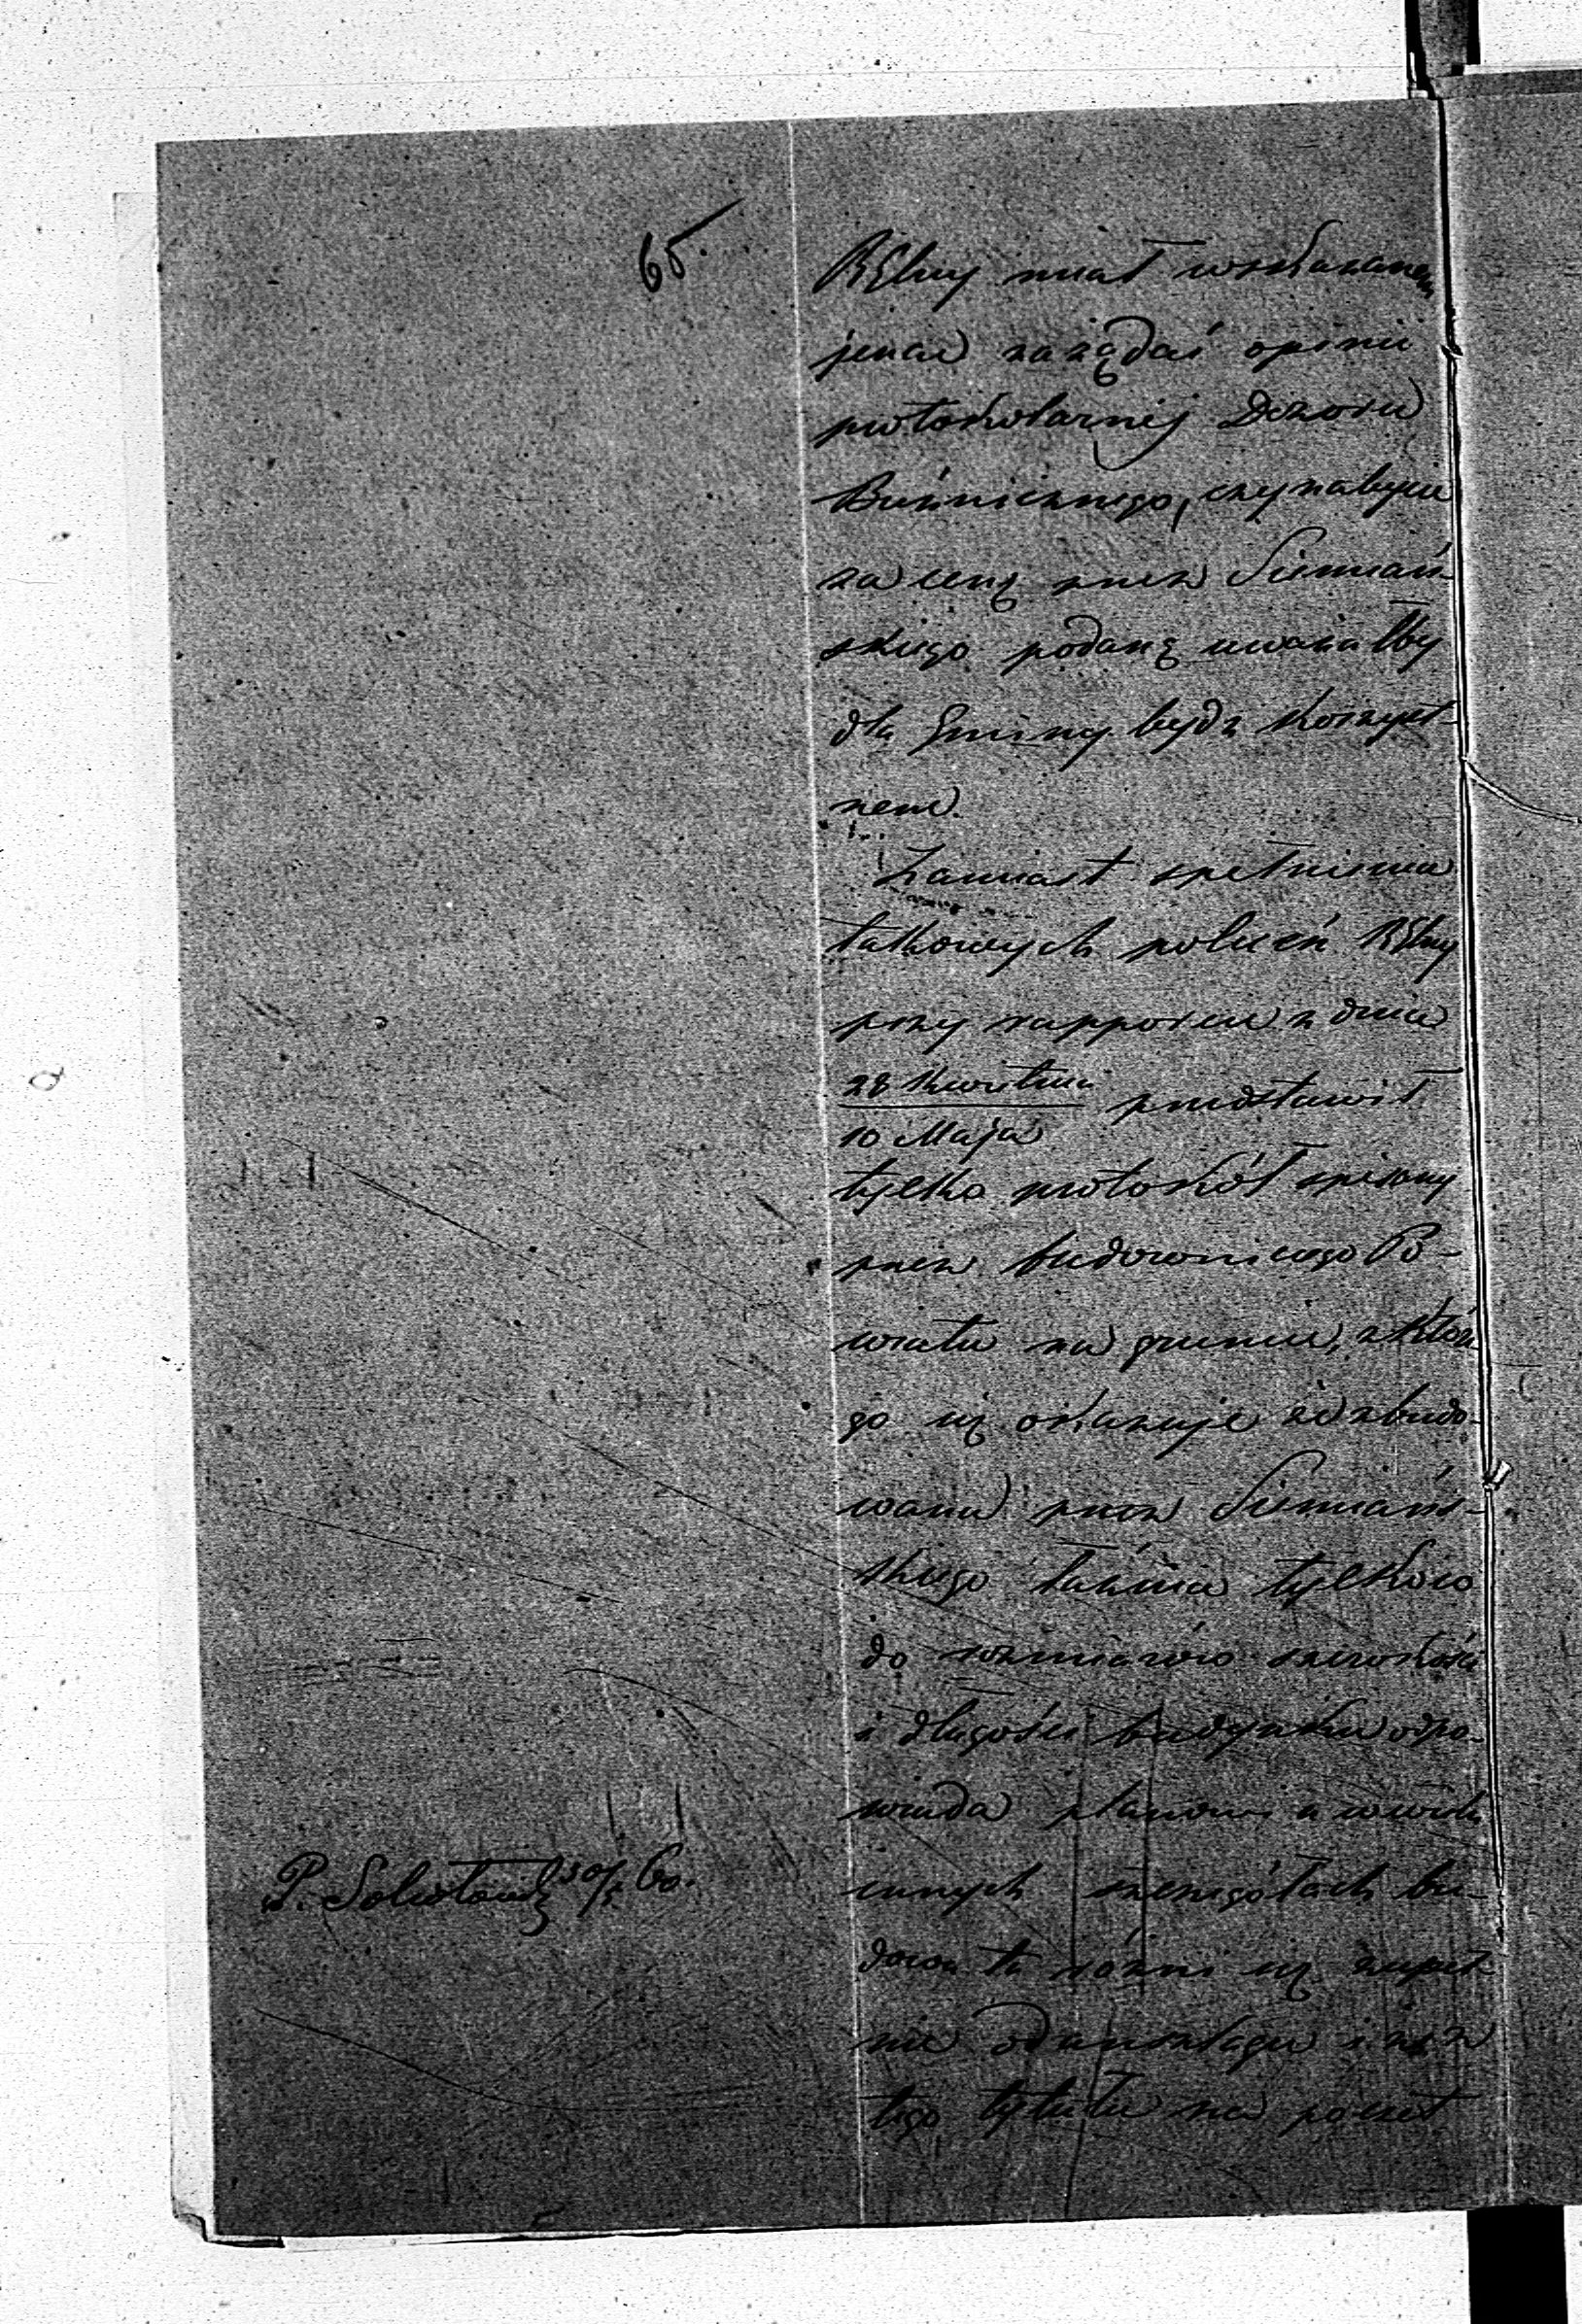 65.
RGlny miał wskazanem
jenae zażądać opinii
protokolarnej Dozoru
Bużnicznego, czy nabycie
za cenę przez Siemiań-
skiego podaną uważałby
dla Gminy bydź korzyst-
nem.
Zamiast spełnienia
takowych poleceń RGlny
przy rapporcie z dnia
28 Kwietnia
10 Maja przedstawił
tylko protokół spisany
przez budowniczego Po-
wiatu na gruncie, z któr
go się okazuje że zbudo-
wana przez Siemiańs-
kiego łaźnia tylko co
do rozmiarów szerokości
i długości budynku odpo-
wiada planowi a w wielu
innych szczegółach bu-
dowa ta różni się zupeł-
nie od anszlagu i że z
tego tytułu na poczet
P. 30/5 60.